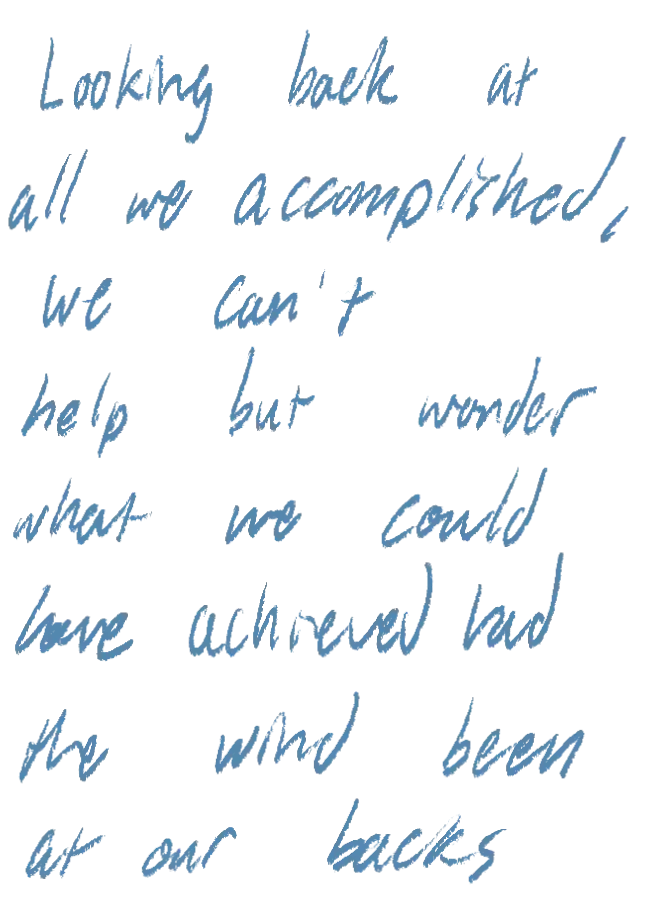 Looking back at
all we accomplished,
we can't
help but wonder
what we could
have achieved had
the wind been
at our backs